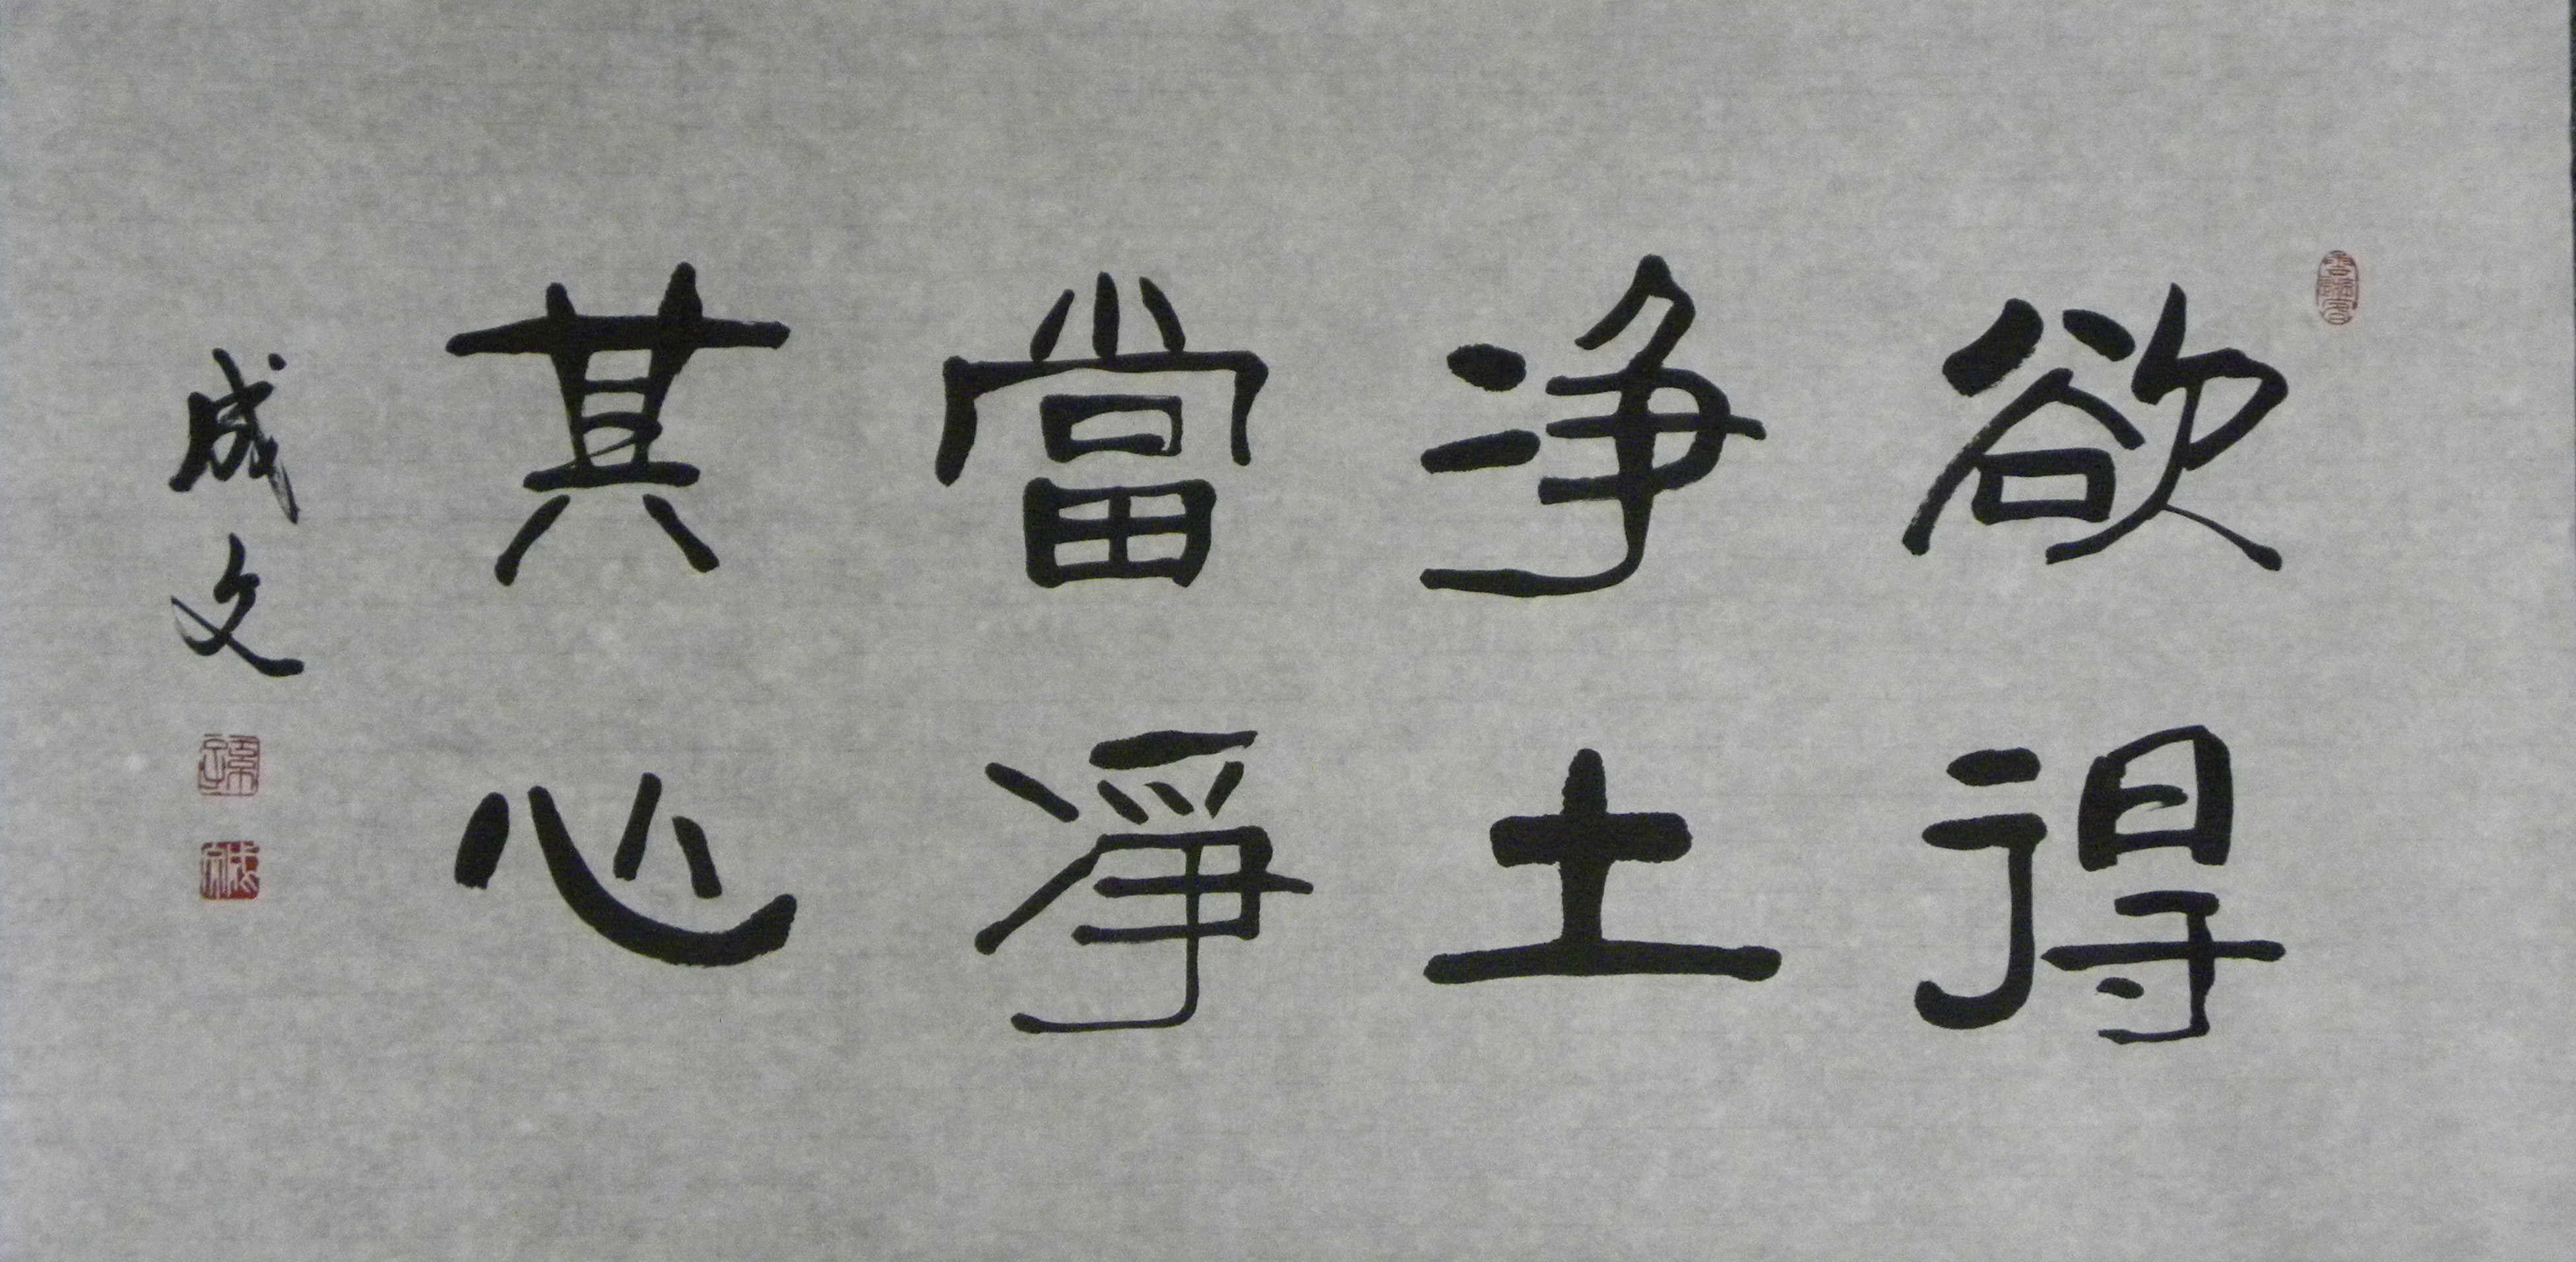 欲得
净土
當淨
其心
成文